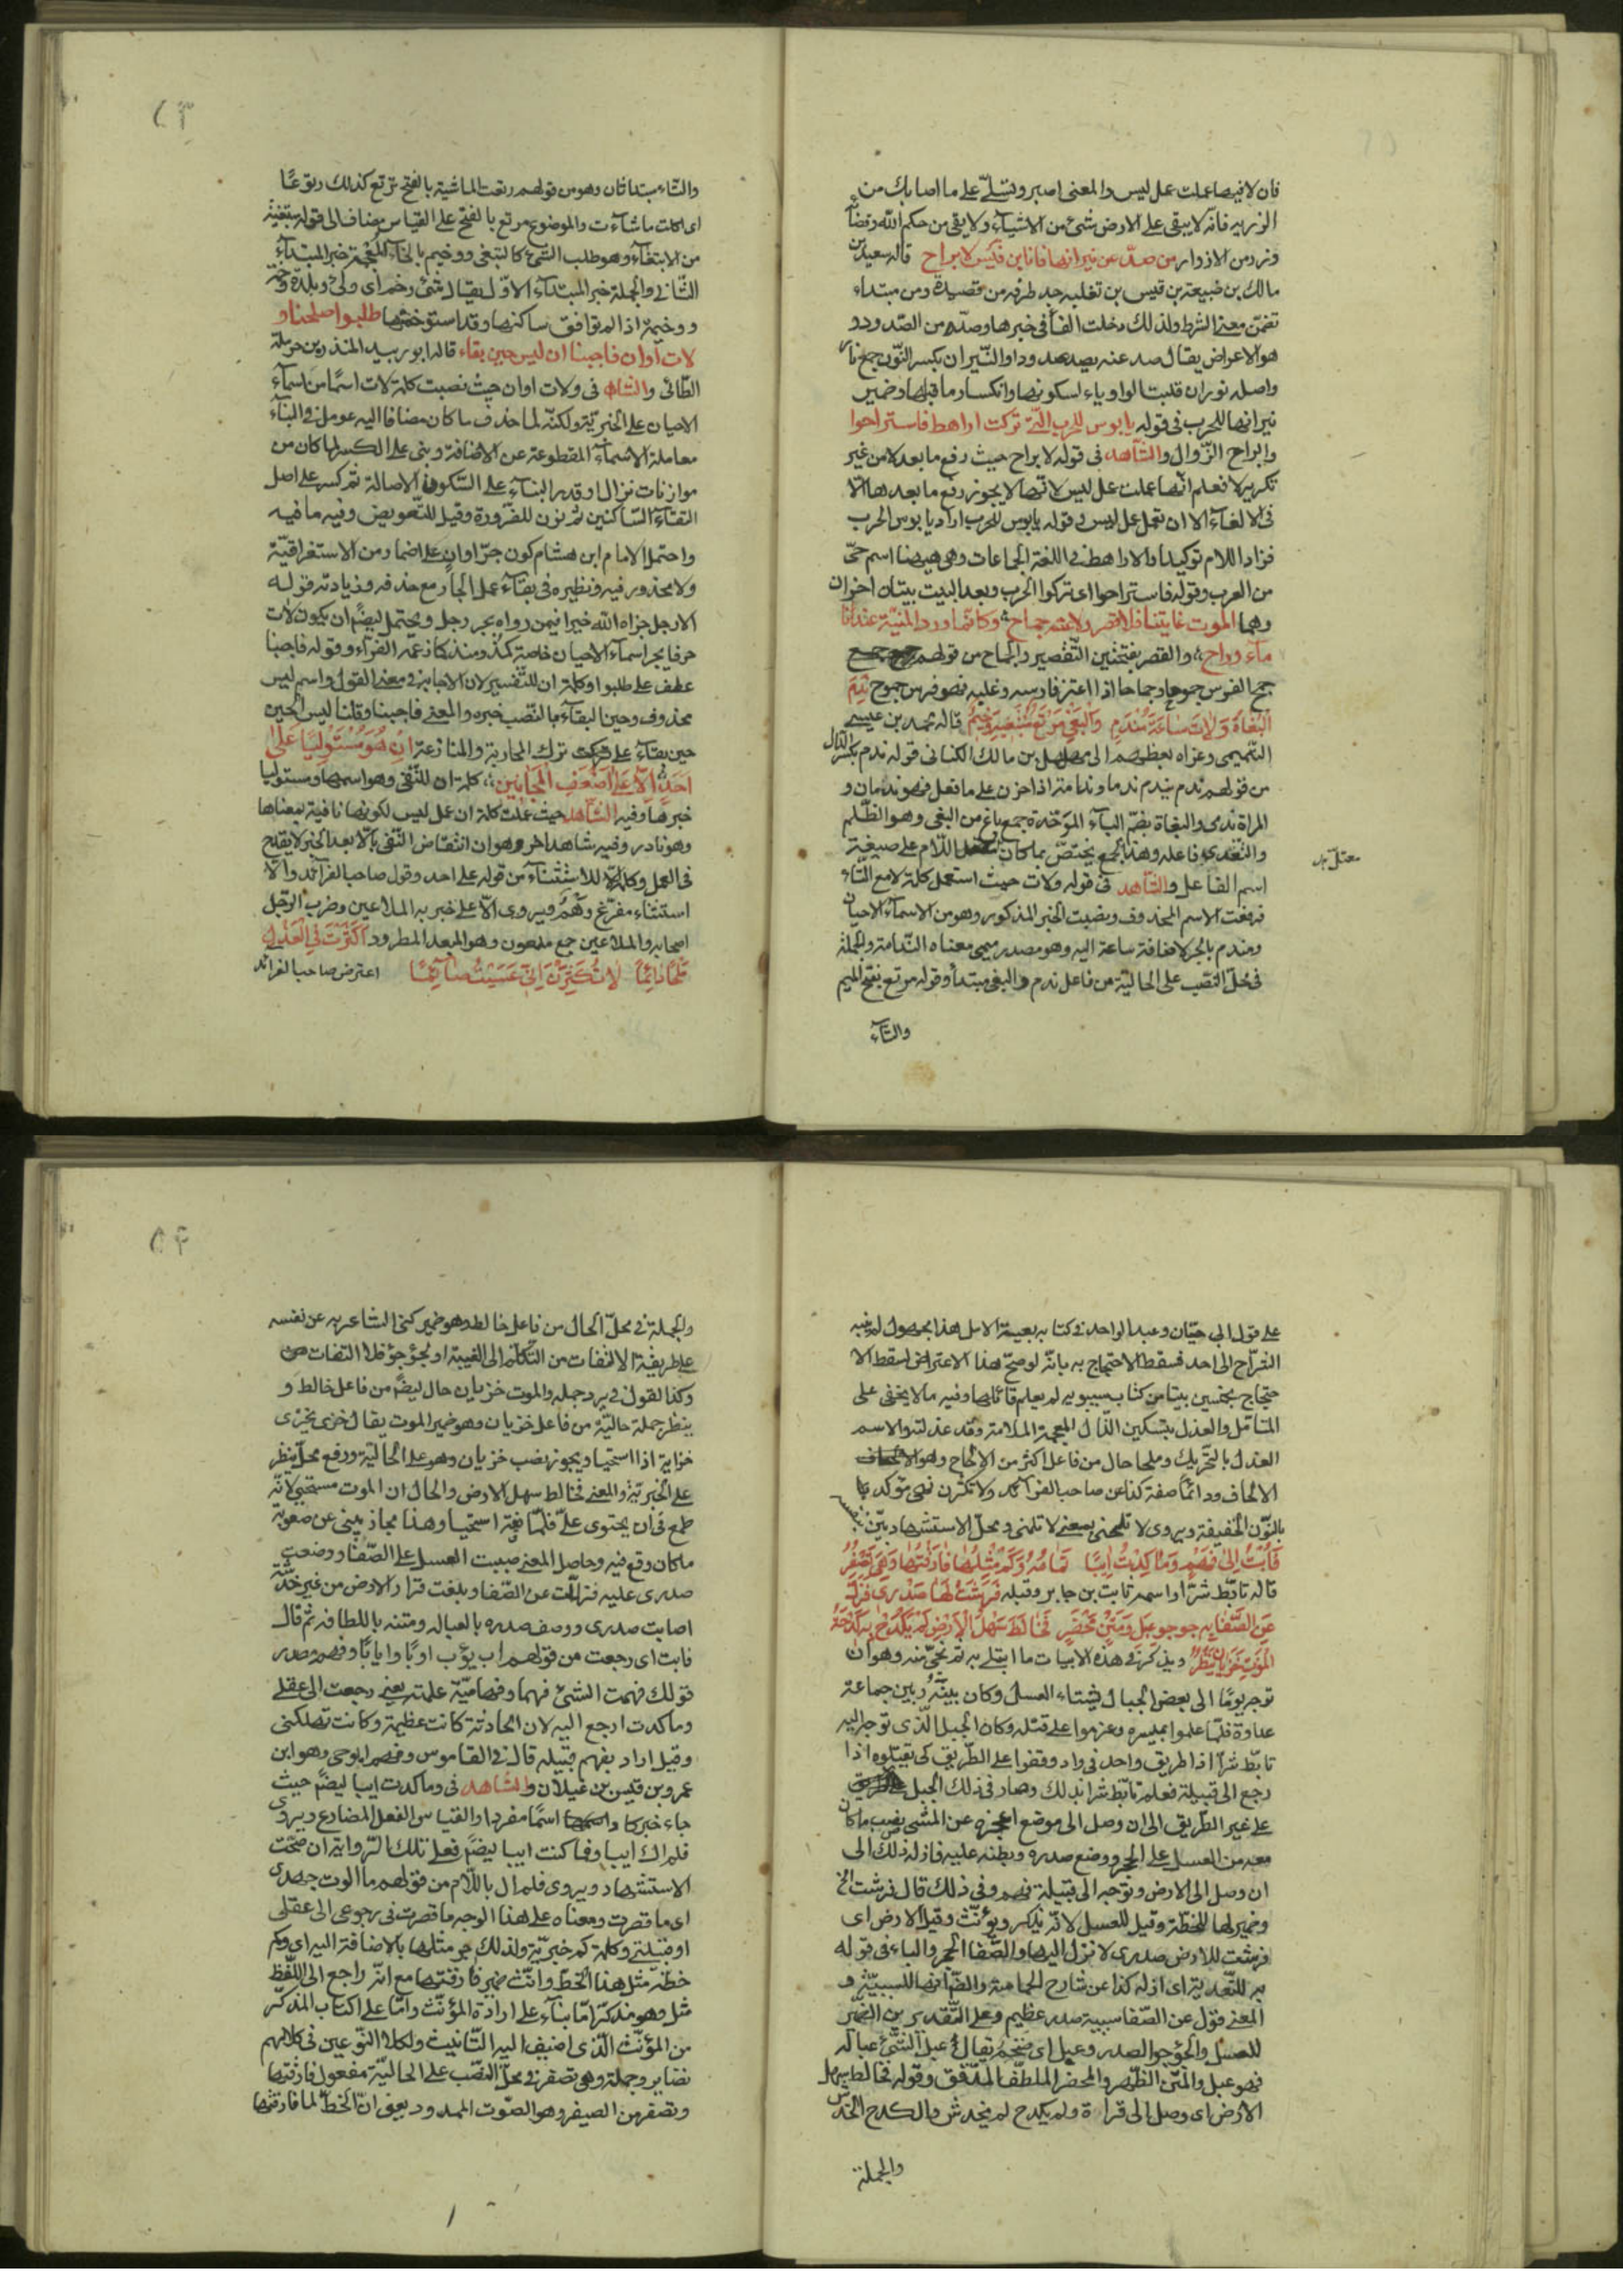 فان لا فيهما عملت عمل ليس والمعنى اصبر وتسلّ على ما اصابك من
الزريه فانه لا يبقى على الارض شئ من الاشيآء ولا يقى من حكم الله وقضآء
وزر من الاوزار من صدّ عن نيرانها فانا ابن قيس لا براح قاله سعيد بن
مالك بن ضبيعة بن قيس بن ثعلبه جد طرفه من قصيدة ومن مبتداء
تضمن معنى الشرط ولذلك دخلت الفآ فى خبرها وصدّ من الصدود و
هو الاعراض يقال صد عنه يصد صدودا والنّيران بكسر النّون جمع نار
واصله نوران قلبت الواو ياء لسكونها وانكسار ما قبلها وضمير
نيرانها للحرب فى قوله يا بوس للحرب الّتى تركت اراهط فاستراحوا
والبراح الزّوال والشاهد فى قوله لا براح حيث رفع ما بعد لا من غير
تكرير لا فعلم انّها عملت عمل ليس لانها لا يجوز رفع ما بعدها الا
فى الالغآء الا ان تعمل عمل ليس وقوله يا بوس للحرب اراد يا بوس الحرب
فزاد اللام توكيدا والاراهط فى اللغة الجماعات وهى ههنا اسم حىّ
من العرب وقوله فاستراحوا اى تركوا الحرب وبعد البيت بيتان اخران
وهما الموت غايتنا فلا قصر ولا عنه جماح وكانّما ورد المنيّة عندنا
مآء وراح والقصر بفتحتين التّقصير والجماح من قولهم
جمح الفرس جموحا وجماحا اذا اعتز فارسه وغلبه فهو فرس جموح نَدِمَ
الْبُغَاةُ وَلَاتَ سَاعَةَ مَنْدَمِ وَالْبَغْىُ مَرْتَعُ مُبْتَغِيهِ وَخِيمُ قاله محمد بن عيسى
التّميمى وعزاه بعظهم الى مهلهل بن مالك الكنانى قوله ندم بكسر الدال
من قولهم ندم يندم ندما وندامة اذا حزن على ما فعل فهو ندمان و
المراة ندمى والبغاة بضمّ البآء الموحّدة جمع باغ من البغى وهو الظّلم
والتّعدى فاعله وهذا الجمع يختصّ بما كان معتل اللّام على صيغة
معتلّ
اسم الفاعل والشّاهد فى قوله ولات حيث استعمل كلمة لا مع التّاء
فرفعت الاسم المحذوف ونصبت الخبر المذكور وهو من الاسمآء الاحيان
ومندم بالجر لاضافة ساعة اليه وهو مصدر ميمى معناه النّدامة والجملة
فى محلّ النّصب على الحاليّة من فاعل ندم والبغى مبتدأ وقوله مرتع بفتح الميم
والتآء
والتّاء مبتدا ثان وهو من قولهم رتعت الماشية بالفتح ترتع كذلك رتوعًا
اى اكلت ما شآءت والموضوع مرتع بالفتح على القياس مضاف الى قوله مبتغيه
من الابتغآء وهو طلب الشئ كالتبغى ووخيم بالخآء المعجمة خبر المبتدآء
الثّانى والجملة خبر المبتدآء الاوّل يقال شئ وخم اى وبئ وبلدة وخمة
ووخيمة اذا لم توافق ساكنها وقد استوخمتها طلبوا صلحنا و
لات اوان فاجبنا ان ليس حين بقاء قاله ابو زبيد المنذر بن حرملة
الطّائى والشاهد فى ولات اوان حيث نصبت كلمة لات اسمًا من اسمآء
الاحيان على الخبريّة ولكنّه لما حذف ما كان مضافا اليه عومل فى البنآء
معاملة الاسمآء المقطوعة عن الاضافة وبنى على الكسر لما كان من
موازنات نزال او قدر البنآء على السّكون فى الاصالة ثم كسر على اصل
التقآء السّاكنين ثم نون للضّرورة وقيل للتّعويض وفيه ما فيه
واحتمل الامام ابن هشام كون جرّ اوان على اضمار من الاستغراقيّة
ولا محذور فيه ونظيره فى بقآء عمل الجارّ مع حذفه وزيادته قوله
الا رجل جزاه الله خيرا فيمن رواه بجر رجل ويحتمل ايضًا ان يكون لات
حرفا يجر اسمآء الاحيان خاصة كمذ ومنذ كما زعمه الفرآء وقوله فاجبنا
عطف على طلبوا وكلمة ان للتّفسير لان الاجابة فى معنى القول واسم ليس
محذوف وحين البقآء بالنّصب خبره والمعنى فاجبنا وقلنا ليس الحين
حين بقآء على ترك المحاربة والمنازعة اِنْ هُوَ مُسْتَوْلِيًا عَلٰى
اَحَدٍ اِلّا عَلٰى اَضْعَفِ الْمَجَانِينِ كلمة ان للنّفى وهو اسمها ومستوليا
خبرها وفيه الشّاهد حيث عملت كلمة ان عمل ليس لكونها نافية بمعناها
وهو نادر وفيه شاهد اخر وهو ان انتقاض النّفى بالّا بعد الخبر لا يقدح
فى العمل وكلمة الّا للاستثنآء من قوله على احد وقول صاحب الفرآئد والّا
استثناء مفرّغ وهم ويروى الّا على خبربه الملاعين وضرب الرّجل
اصحابه والملاعين جمع ملعون وهو المبعد المطرود اَكْثَرْتَ فِى الْعَذْلِ
مُلِحًّا دَائِمًا لَا تُكْثِرَنْ اِنّى عَسَيْتُ صَآئِمًا اعترض صاحب الفرائد
على قول ابى حيّان وعبد الواحد فى كتابه بعيبة الامل هذا مجهول لم ينسبه
الشّراح الى احد فسقط الاحتجاج به بانّه لو صحّ هذا الاعتراض لسقط الا
حتجاج بخمسين بيتا من كتاب سيبويه لم يعلم قائلها وفيه ما لا يخفى على
المتامّل والعذل بتسكين الذّال المعجمة الملامة وقد عذلته والاسم
العذل بالتّحريك وملحا حال من فاعل اكثر من الالحاح وهو
الالحاف ودائمًا صفة كذا عن صاحب الفرآئد ولا تكثرن نهى مؤكد
بالنّون الخفيفة ويروى لا تلحنى بمعنى لا تلمنى ومحلّ الاستشهاد بيّن
فَاُبْتُ اِلٰى فَهْمٍ وَمَا كِدْتُ اٰيِبًا تَمَامُهُ وَكَمْ مِثْلِهَا فَارَقْتُهَا وَهِىَ تَصْفِرُ
قاله تابّط شرّا واسمه ثابت بن جابر وقبله فَرَشْتُ لَهَا صَدْرِى فَزَلَّ
عَنِ الصَّفَا بِهِ جوجو عبل وَمَتْنٌ مُخَصَّرٌ فَخَالَطَ سَهْلَ الْاَرْضِ لَمْ يَكْدَحْ بِهِ كَدْحَةً
الْمَوْتُ خَزْيَانُ يَنْظُرُ ويذكر فى هذه الابيات ما ابتلى به ثم نجىّ منه وهو ان
توجه يومًا الى بعض الجبال ليشتاء العسل وكان بينَه وبين جماعة
عداوة فلمّا علموا بمسيره وعزموا على قتله وكان الجبل الّذى توجه اليه
تابّط شرّا اذا طريق واحد فى واد ووقفوا على الطّريق كى يقتلوه اذا
رجع الى قبيلة فعلم تابّط شرا بذلك وصار فى ذلك الجبل
على غير الطّريق الى ان وصل الى موضع اعجزه عن المشى نصب ما كان
معه من العسل على الحجر ووضع صدره وبطنه عليه فازله ذلك الى
ان وصل الى الارض وتوجه الى قبيلة فهم وفى ذلك قال فرشت الخ
وضمير لها للخطّة وقيل للعسل لانّه يذكر ويؤنّث وقيل للارض اى
فرشت للارض صدرى لانزل اليها والصّفا الحجر والباء فى قوله
به للتّعدية اى ازله كذا عن شارح الحماسة والظّاهر انها للسببيّة و
المعنى فزل عن الصّفا بسببه صدر عظيم وعلى التّقديرين الضّمير
للعسل والجؤجؤ الصدر وعبل اى ضخم يقال عبل الشّئ عبالة
فهو عبل والمتن الظّهر والمخصر الملطّف المدقّق وقوله فخالط سهل
الارض اى وصل الى قراره ولم يكدح لم يخدش والكدح الخدش
والجملة
والجملة فى محلّ الحال من فاعل خالط وهو ضمير كنى الشاعر به عن نفسه
على طريقة الالتفات من التكلّم الى الغيبة او لجؤجؤ فلا التفات
وكذا القول فى يرد جمله والموت خزيان حال ايضًا من فاعل خالط و
ينظر جملة حاليّة من فاعل خزيان وهو ضمير الموت يقال خزى يخزى
خزاية اذا استحيا ويجوز نصب خزيان وهو على الحاليّة ورفع محلّ ينظر
على الخبريّة والمعنى فخالط سهل الارض والحال ان الموت مستحيى لانّه
طمع فى ان يحتوى علىّ فلمّا فتّه استحيا وهذا مجاز ينبى عن صعوبة
ما كان وقع فيه وحاصل المعنى صببت العسل على الصّفا ووضعت
صدرى عليه فزلّت عن الصّفا وبلغت قرار الارض من غير خدشة
اصابت صدرى ووصف صدره بالعبالة ومتنه باللطافة ثم قال
فابت اى رجعت من قولهم اب يؤب اوبًا وايابًا وفهم مصدر
قولك فهمت الشئ فهما وفهاميّة علمته يعنى رجعت الى عقلى
وما كدت ارجع اليه لان الحادثة كانت عظيمة وكانت تهلكنى
وقيل اراد بفهم قبيله قال فى القاموس وفهم ابو حى وهو ابن
عمرو بن قيس بن عيلان والشاهد فى وما كدت ايبا ايضًا حيث
جاء خبر كاد اسمًا مفردا والقياس الفعل المضارع ويروى
فلم اك ايبا وما كنت ايبا ايضًا فعلى تلك الرّواية ان صحّت
الاستشهاد ويروى فلم ال باللّام من قولهم ما الوت جهدى
اى ما قصرت ومعناه على هذا الوجه ما قصرت فى رجوعى الى عقلى
او قبيلتى وكلمة كم خبريّة ولذلك جر مثلها بالاضافة اليه اى وكم
خطّة مثل هذا الخطّ وانّث ضمير فارقتها مع انّه راجع الى اللّفظ
مثل وهو مذكر امّا بنآء على ارادة المؤنّث وامّا على اكتساب المذكّر
من المؤنّث الّذى اضيف اليه التّانيث ولكلا النّوعين فى كلامهم
نضاير وجملة وهى تصفر فى محلّ النّصب على الحاليّة مفعول فارقتها
وتصفر من الصيفر وهو الصّوت الممدود يعنى انّ الخطّ لما فارقتها